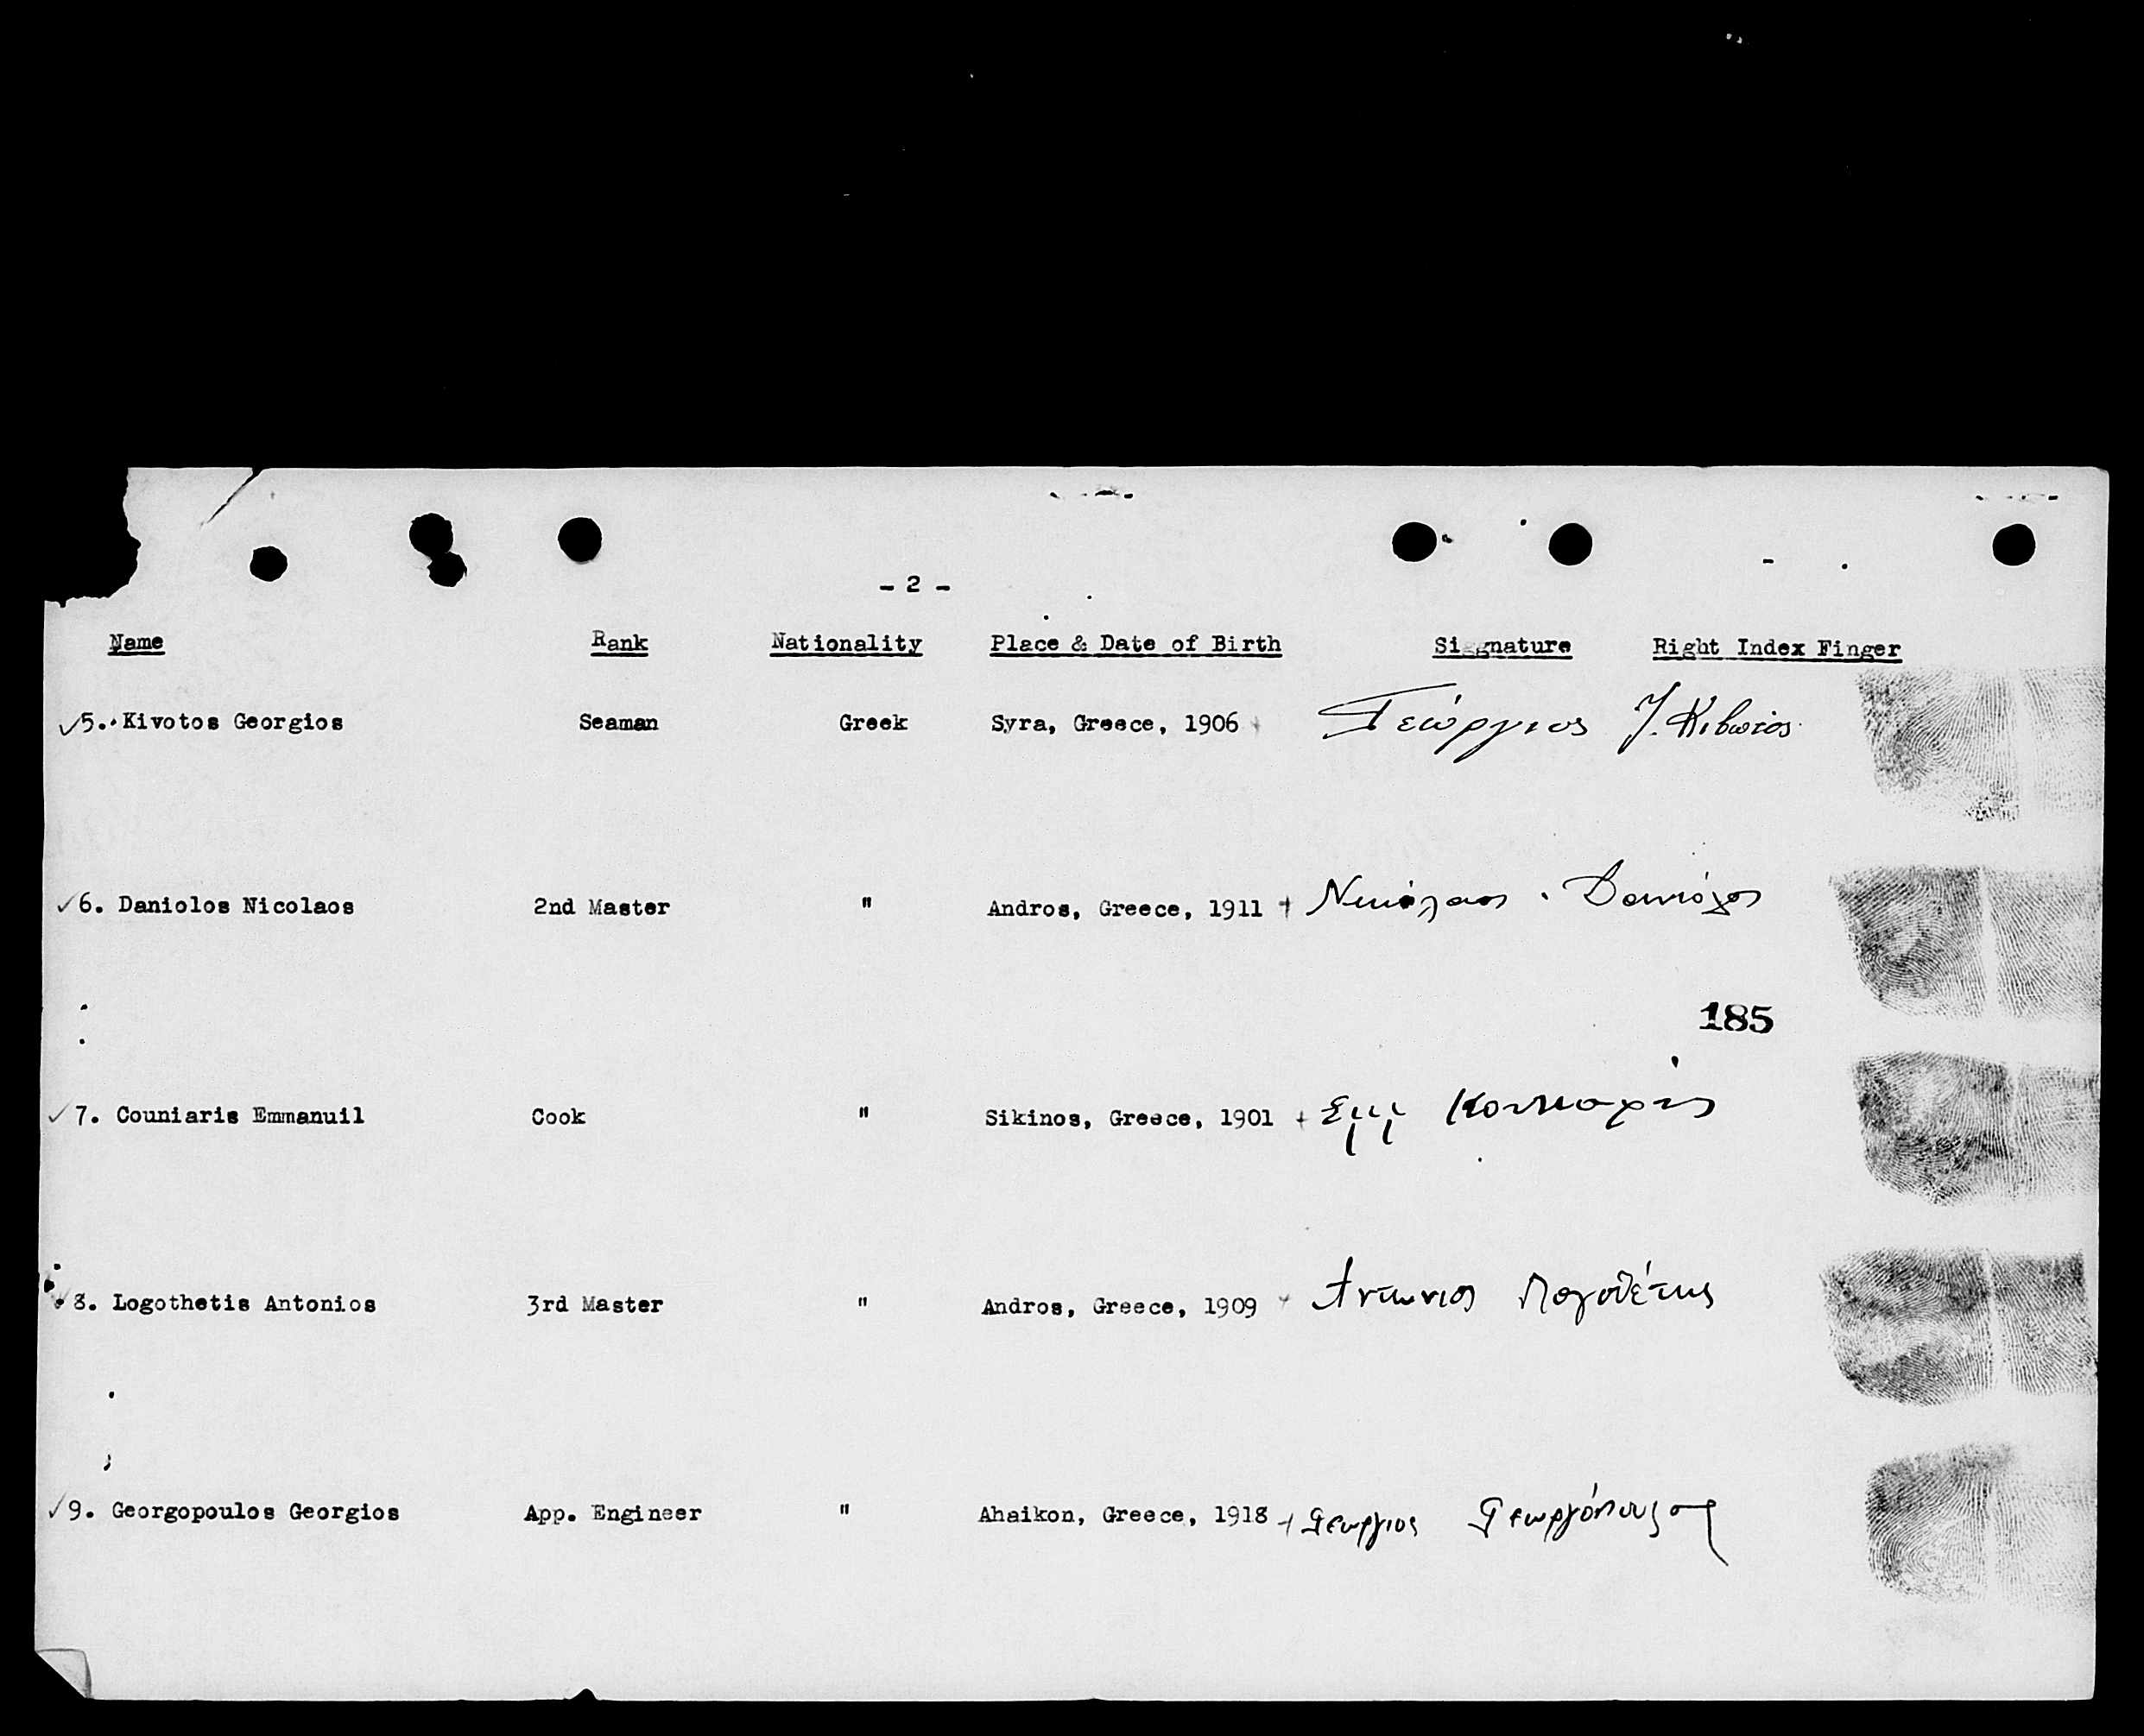 - 2 -
Name Rank Nationality Place & Date of Birth Siggnature Right Index Finger
✓5. Kivotos Georgios Seaman Greek Syra, Greece, 1906 Γεώργιος Ι. Κιβωτός
✓6. Daniolos Nicolaos 2nd Master " Andros, Greece, 1911 + Νικόλαος Δανιόλος
185
✓7. Couniaris Emmanuil Cook " Sikinos, Greece, 1901 + Εμμ Κουνιαρης
✓8. Logothetis Antonios 3rd Master " Andros, Greece, 1909 Αντωνιος Λογοθέτης
✓9. Georgopoulos Georgios App. Engineer " Ahaikon, Greece, 1918 + Γεωργιος Γεωργόπουλος